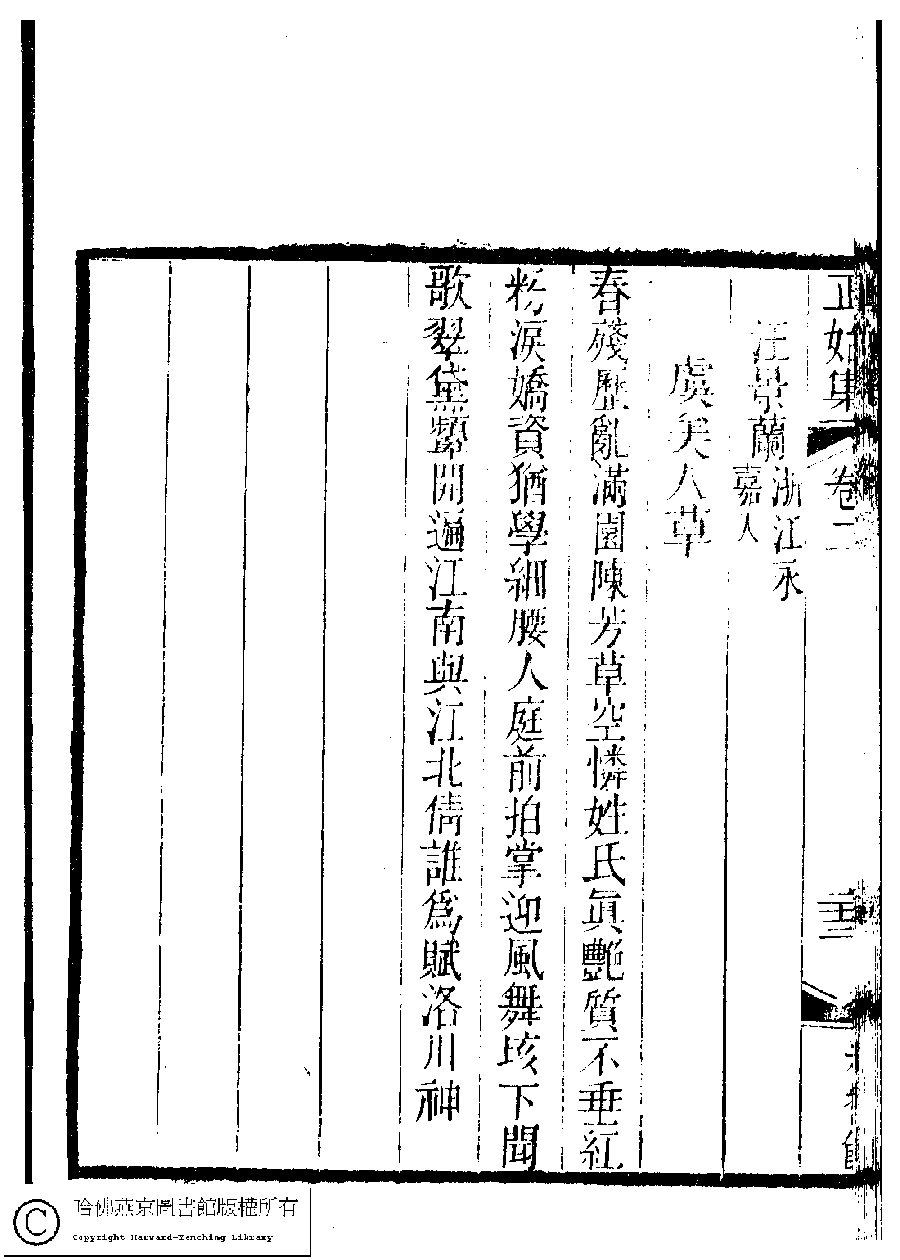 正始集 卷二
汪景蘭 浙江永
嘉人
虞美人草
春殘歷亂滿園陳芳草空憐姓氏眞艷質不垂紅
粉淚嬌資猶學細腰人庭前拍掌迎風舞垓下聞
歌翠黛顰開遍江南與江北倩誰爲賦洛川神
哈佛燕京圖書館版權所有
Copyright Harvard-Yenching Library